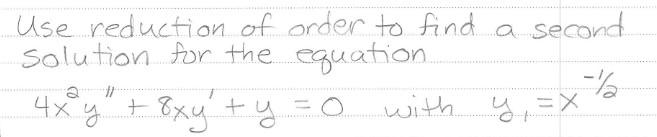 Use reduction of order to find a second
solution for the equation
4x²y" + 8xy' + y = 0 with y₁ = x^(-1/2)